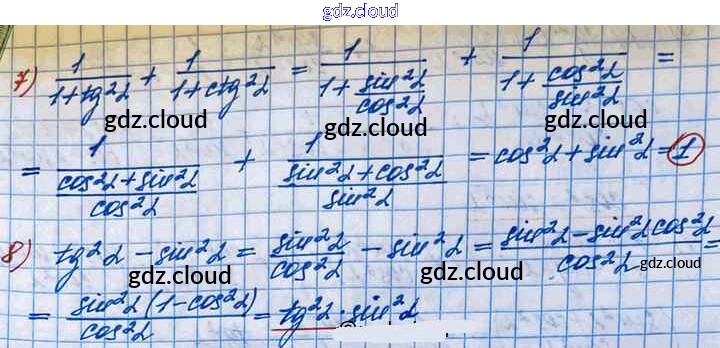 gdz.cloud
7) 1/(1+tg²α) + 1/(1+ctg²α) = 1/(1+sin²α/cos²α) + 1/(1+cos²α/sin²α) =
gdz.cloud gdz.cloud gdz.cloud
= 1/((cos²α+sin²α)/cos²α) + 1/((sin²α+cos²α)/sin²α) = cos²α+sin²α = 1
gdz.cloud gdz.cloud gdz.cloud
8) tg²α - sin²α = sin²α/cos²α - sin²α = (sin²α-sin²α cos²α)/cos²α =
gdz.cloud gdz.cloud gdz.cloud
= sin²α(1-cos²α)/cos²α = tg²α · sin²α